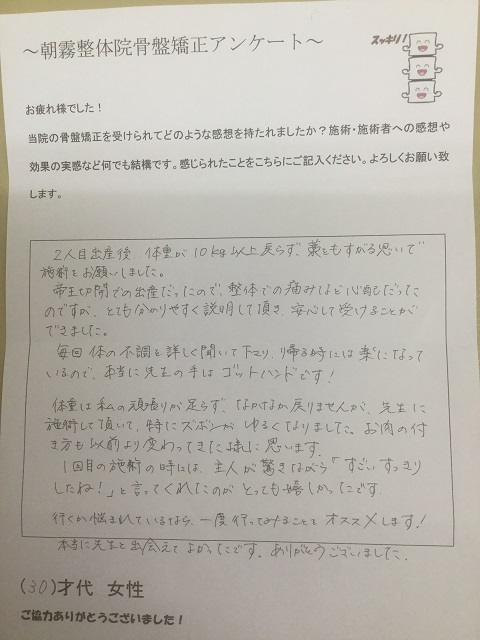 ～朝霧整体院骨盤矯正アンケート～
スッキリ!
お疲れ様でした！
当院の骨盤矯正を受けられてどのような感想を持たれましたか？施術・施術者への感想や
効果の実感など何でも結構です。感じられたことをこちらにご記入ください。よろしくお願い致
します。
2人目出産後、体重が10kg以上戻らず、藁をもすがる思いで
施術をお願いしました。
帝王切開での出産だったので、整体での痛みなど心配だった
のですが、とても分かりやすく説明して頂き、安心して受けることが
できました。
毎回体の不調を詳しく聞いて下さり、帰る時には楽になって
いるので、本当に先生の手はゴットハンドです！
体重は私の頑張りが足らず、なかなか戻りませんが、先生に
施術して頂いて、特にズボンがゆるくなりました。お肉の付
き方も以前より変わってきた様に思います。
1回目の施術の時には、主人が驚きながら「すごいすっきり
したね！」と言ってくれたのがとっても嬉しかったです。
行くか悩まれているなら、一度行ってみることをオススメします！
本当に先生と出会えてよかったです。ありがとうございました。
(30)才代 女性
ご協力ありがとうございました！